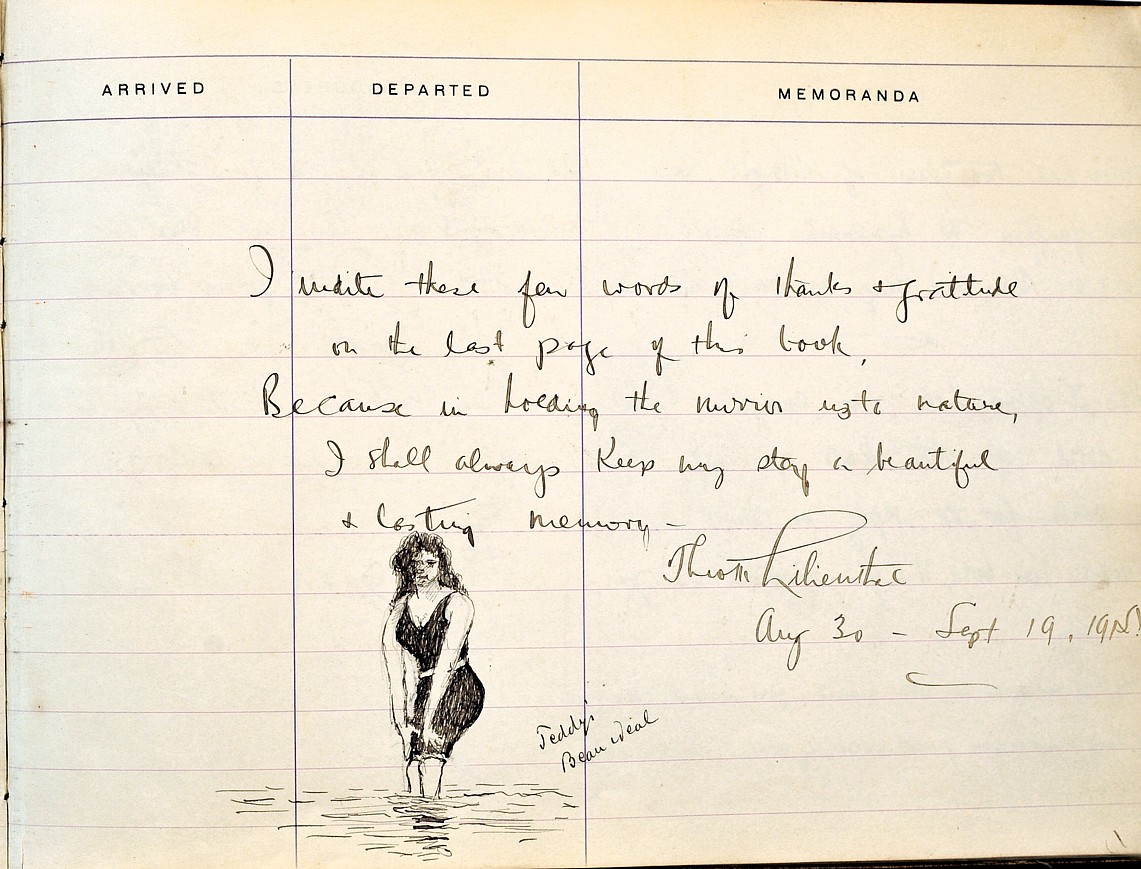 ARRIVED DEPARTED MEMORANDA
I indite these few words of thanks & gratitude
on the last page of this book,
Because in holding the mirror up to nature,
I shall always keep my stay a beautiful
& lasting memory -
Lilienthal
Aug 30 - Sept 19,
Teddy's
Beau ideal